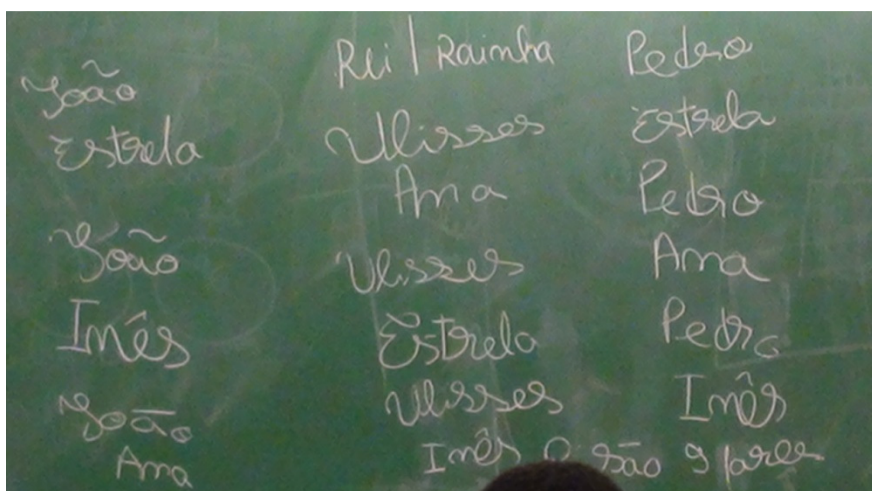 João
Estrela
João
Inês
João
Ana
Rei | Rainha
Ulisses
Ana
Ulisses
Estrela
Ulisses
Inês
Pedro
Estrela
Pedro
Ana
Pedro
Inês
são 9 pares